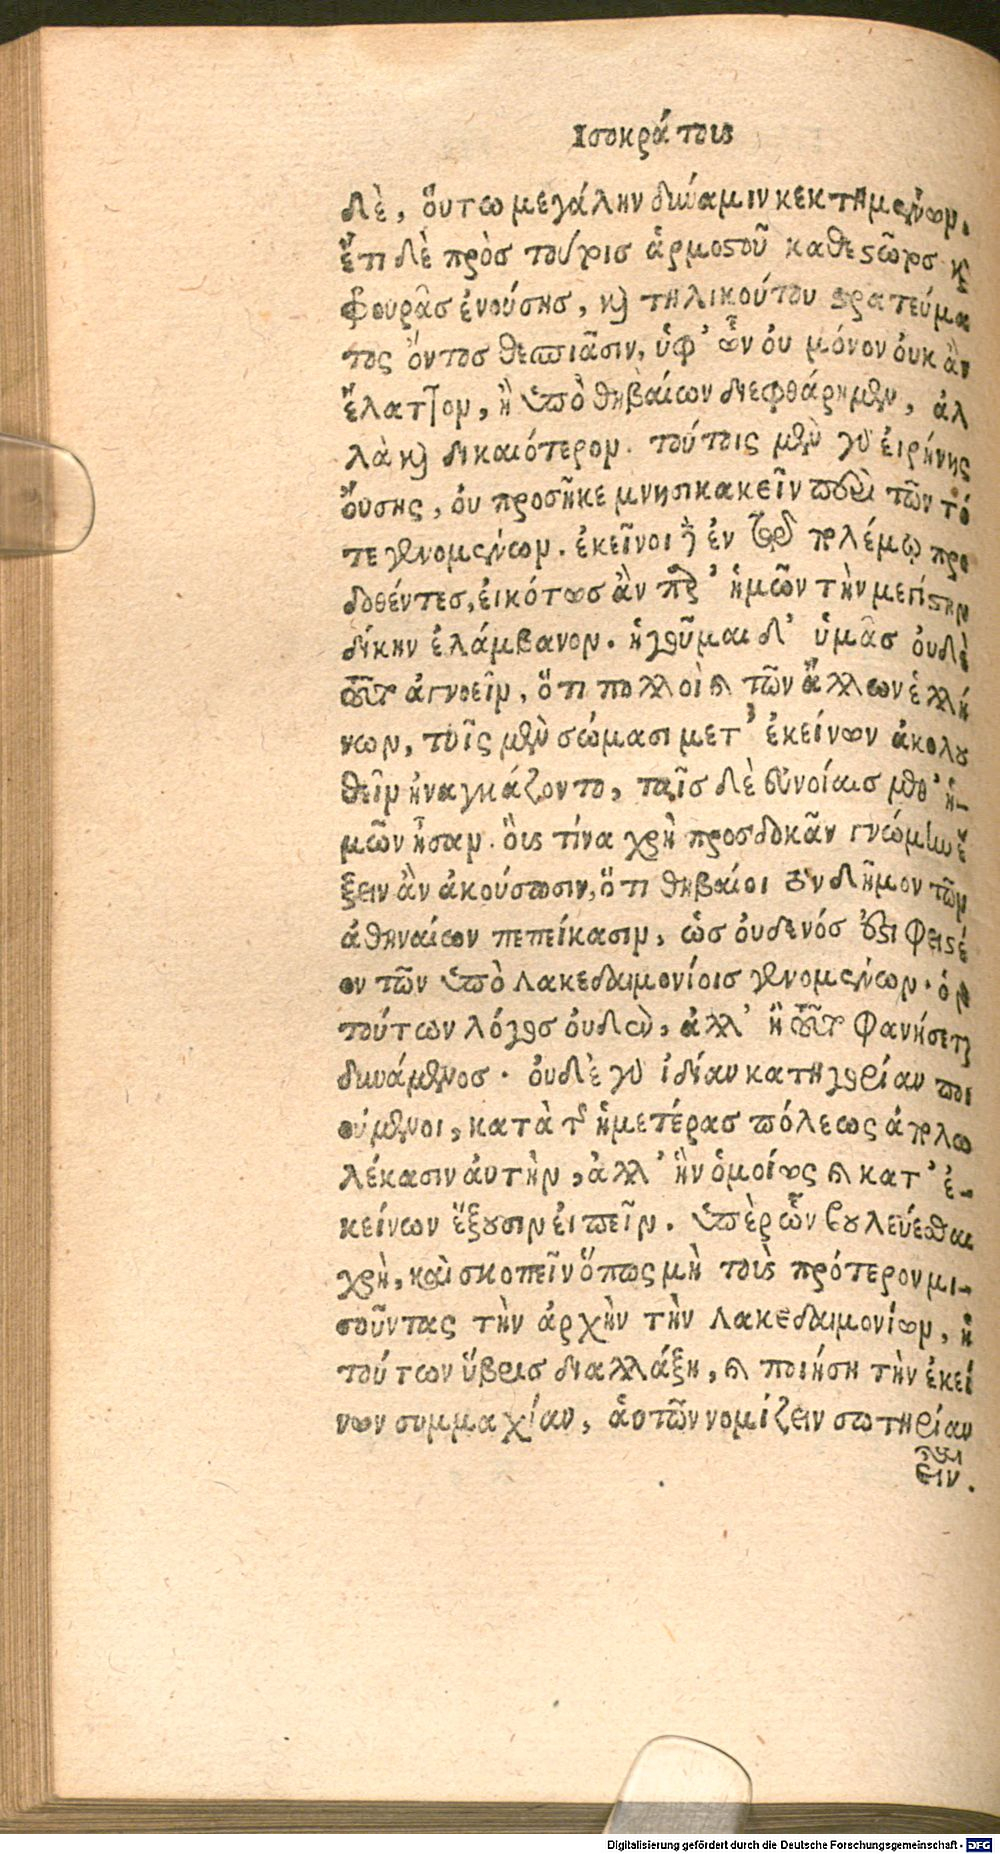 Ισοκράτους
δὲ, ὅυτω μεγάλην δύναμιν κεκτημένων,
ἔτι δὲ πρὸσ τούτοισ ἁρμοστοῦ καθεστῶτοσ κỳ
φουρᾶσ ἐνούσησ, κỳ τηλικούτου στρατεύμα
τος ὄντοσ θεσπιᾶσιν, ὑφ' ὧν ὀυ μόνον ὀυκ ἂν
ἔλαττον, ἢ ὑπὸ θηβαίων διεφθάρημεν, ἀλ
λὰ κỳ δικαιότερον. τούτοις μὲν γὸ ἐιρήνης
ὄυσης, ὀυ προσῆκε μνησικακεῖν περὶ τῶν τό
τε γενομένων. ἐκεῖνοι δὲ ἐν τῷ πολέμῳ προ
δοθέντεσ, ἐικότωσ ἂν παρ' ἡμῶν τὴν μεγίστην
δίκην ἐλάμβανον. ἡγοῦμαι δ' ὑμᾶσ ὀυδὲ
τοῦτο ἀγνοεῖν, ὅτι πολλοὶ καὶ τῶν ἄλλων ἑλλή
νων, τοῖς μὲν σώμασι μετ' ἐκείνων ἀκολου
θεῖν ἠναγκάζοντο, ταῖσ δὲ ἐυνοίαισ μεθ' ἡ-
μῶν ἦσαν. ὃυς τίνα χρὴ προσδοκᾶν γνώμην ἕ
ξειν ἂν ἀκούσωσιν, ὅτι θηβαίοι τὸν δῆμον τῶν
ἀθηναίων πεπείκασιν, ὡσ ὀυδενόσ ἐστι φειστέ
ον τῶν ὑπὸ λακεδαιμονίοισ γενομένων. ὁ γὰρ
τούτων λόγοσ ὀυδὲν, ἀλλ' ἢ τοῦτο φανήσεται
δυνάμενοσ. ὀυδὲ γὸ ἰδίαν κατηγορίαν ποι
ούμενοι, κατὰ τῆς ἡμετέρασ πόλεως ἀπολω
λέκασιν ἀυτὴν, ἀλλ' ἣν ὁμοίως καὶ κατ' ἐ-
κείνων ἕξουσιν ἐιπεῖν. ὑπὲρ ὧν βουλεύεσθαι
χρὴ, καὶ σκοπεῖν ὅπως μὴ τοὺς πρότερον μι-
σοῦντας τὴν ἀρχὴν τὴν λακεδαιμονίων, ἡ
τούτων ὕβρισ διαλλάξη, καὶ ποιήση τὴν ἐκεί
νων συμμαχίαν, ἁυτῶν νομίζειν σωτηρίαν